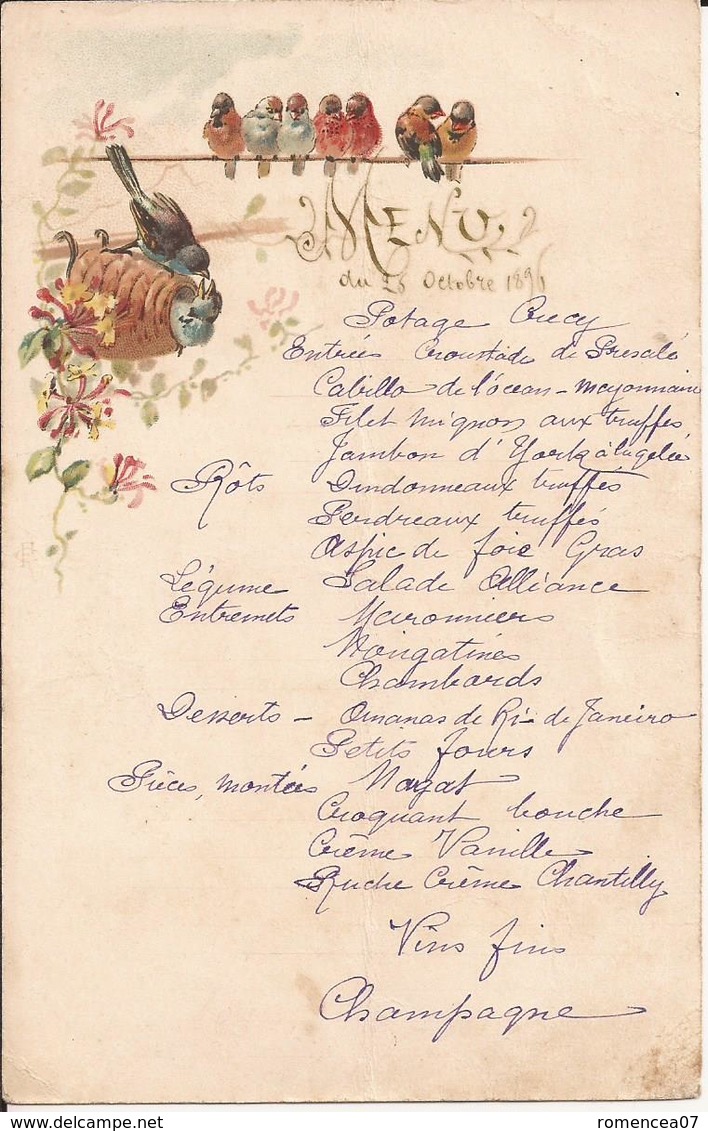 Menu
du 26 Octobre 1896
Potage Crecy
Entrées Croustade de Presalé
Cabillo de l'océan - Mayonnaise
Filet mignon aux truffes
Jambon d'York à la gelée
Rôts Dindonneaux truffés
Perdreaux truffés
Aspic de foie Gras
Légume Salade Alliance
Entremets Maronniers
Nougatines
Chambards
Desserts - Omanas de Ri - de Janeiro
Petits fours
Pièces, montées Nogat
Croquant bouche
Crème Vanille
Ruche Crème Chantilly
Vins fins
Champagne
delcampe.net
romencea07